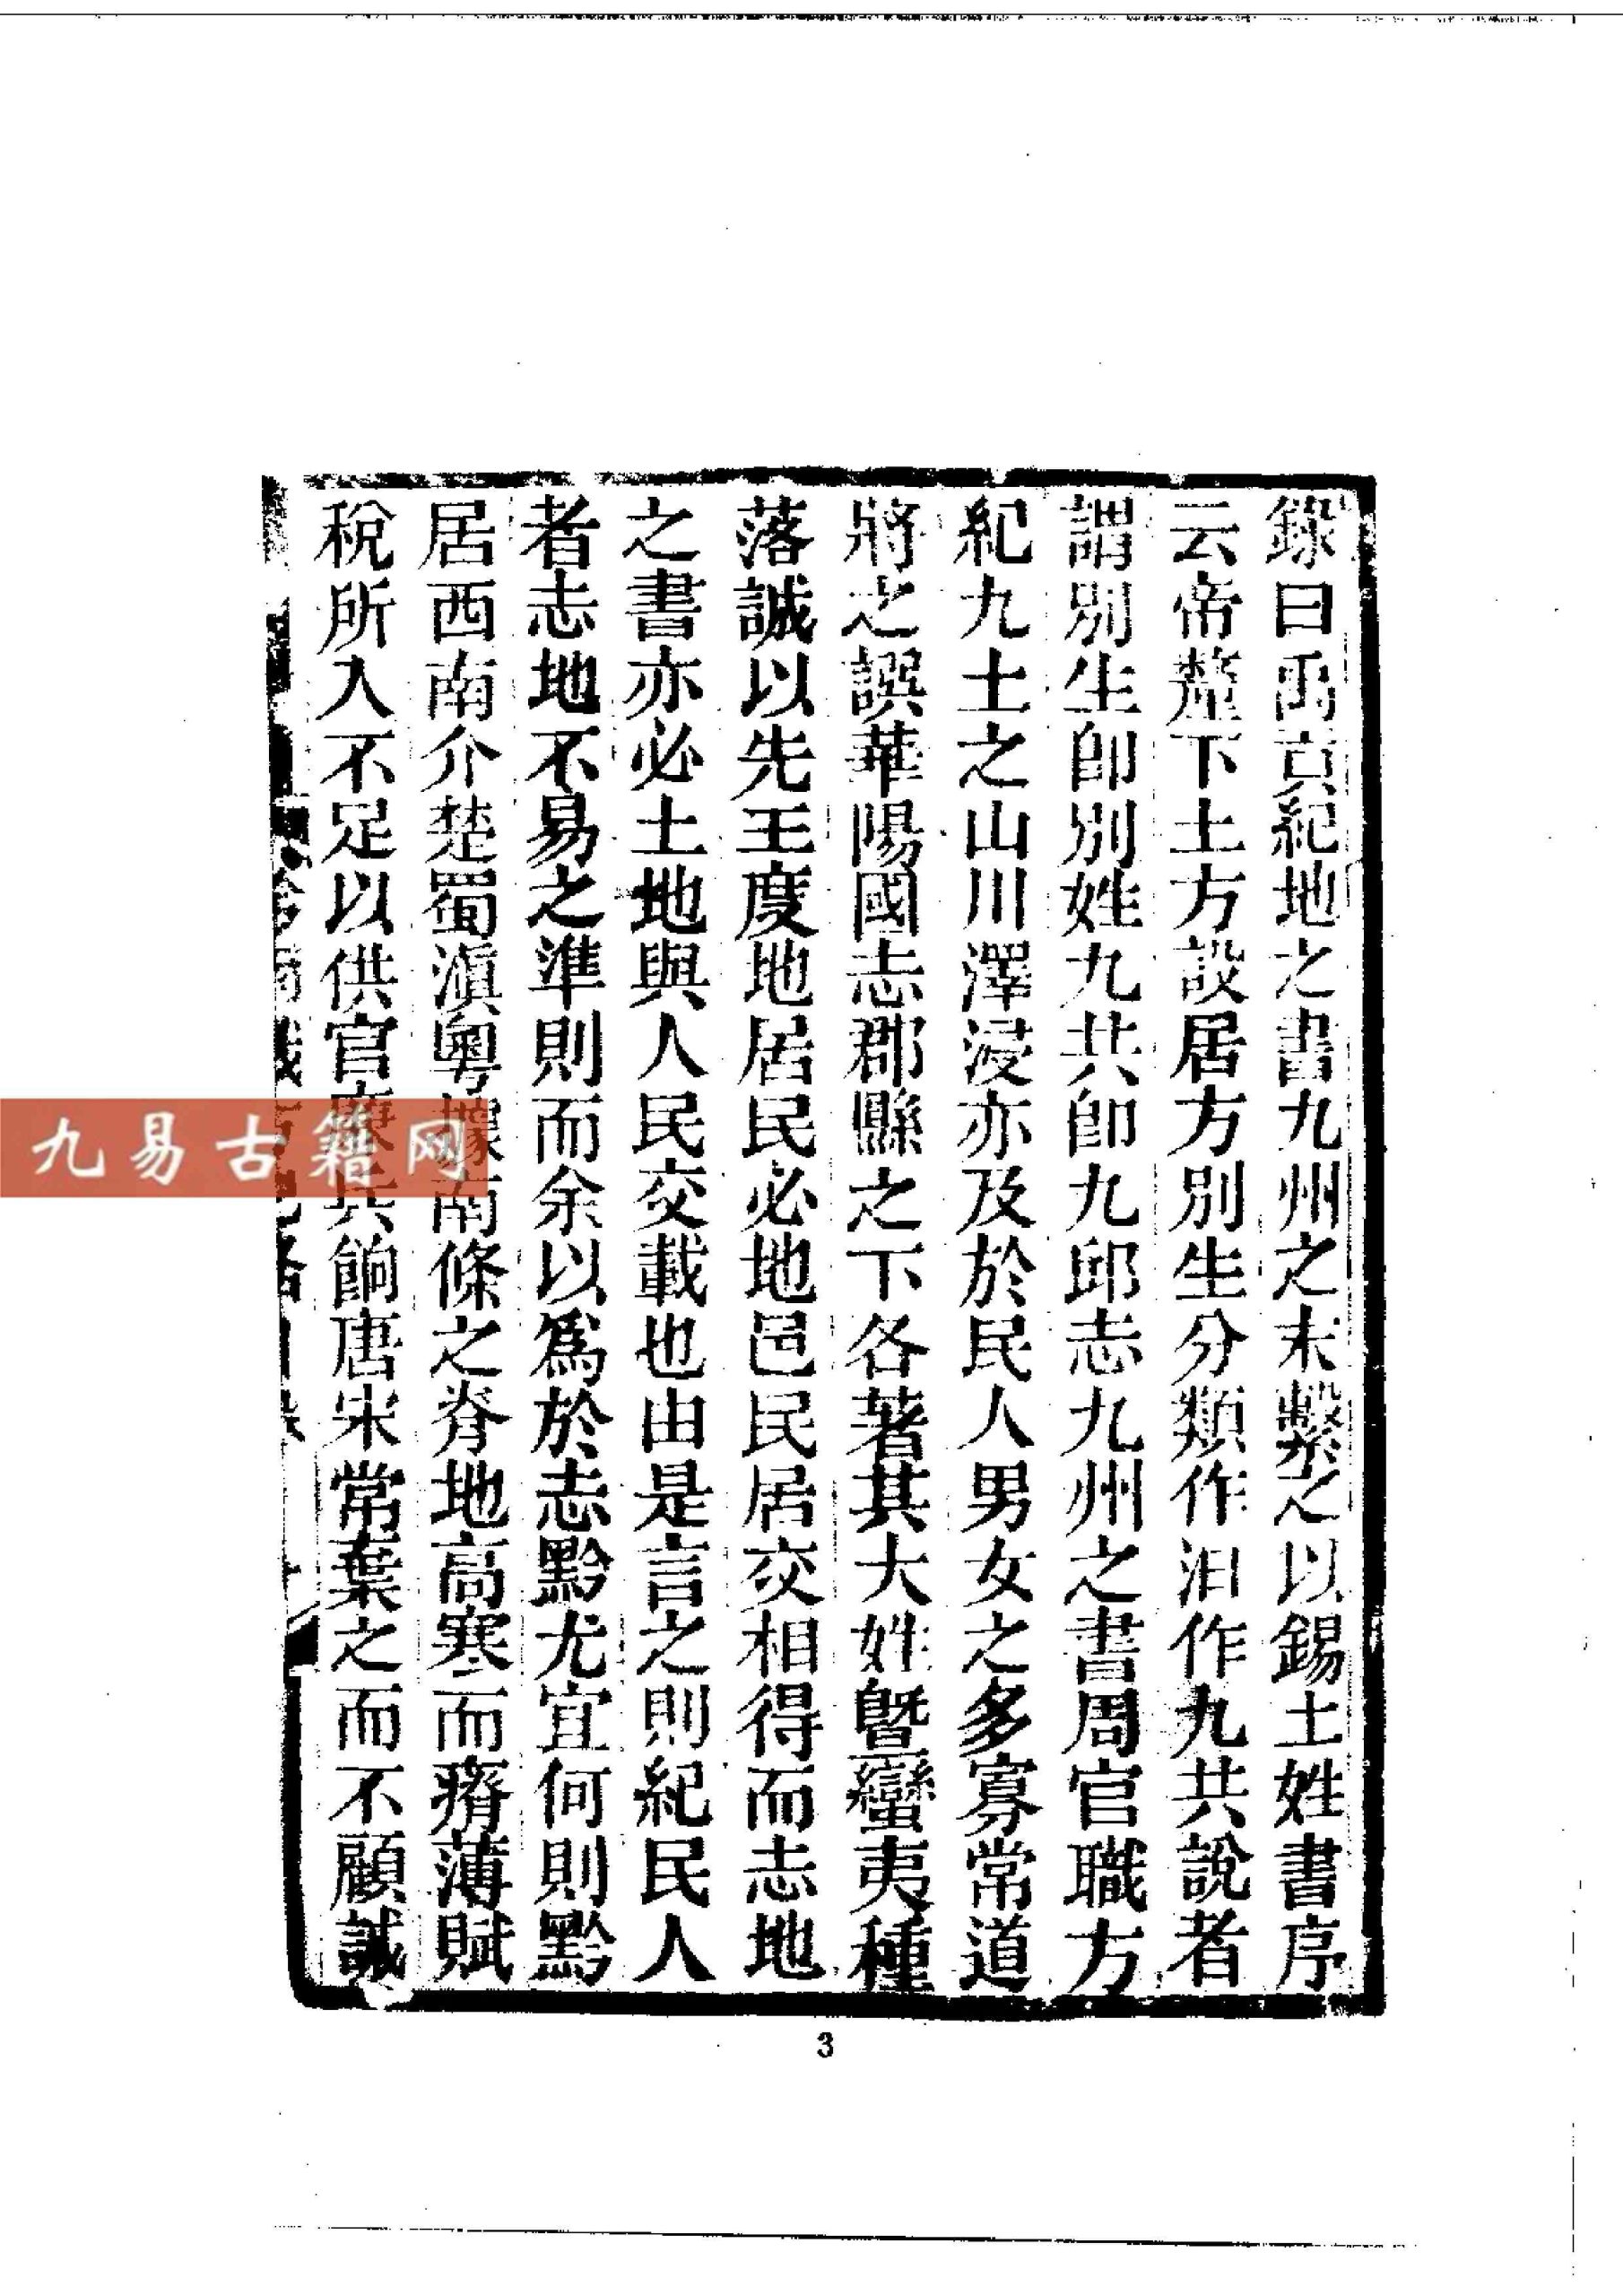 錄曰禹貢紀地之書九州之末繫之以錫土姓書序
云帝釐下土方設居方別生分類作汨作九共說者
謂別生卽別姓九共卽九邱志九州之書周官職方
紀九土之山川澤浸亦及於民人男女之多寡常道
將之譔華陽國志郡縣之下各著其大姓曁蠻夷種
落誠以先王度地居民必地邑民居交相得而志地
之書亦必土地與人民交載也由是言之則紀民人
者志地不易之準則而余以爲於志黔尤宜何則黔
居西南介楚蜀滇粵據南條之脊地高寒而瘠薄賦
稅所入不足以供官廉兵餉唐宋常棄之而不顧誠
九易古籍网
3